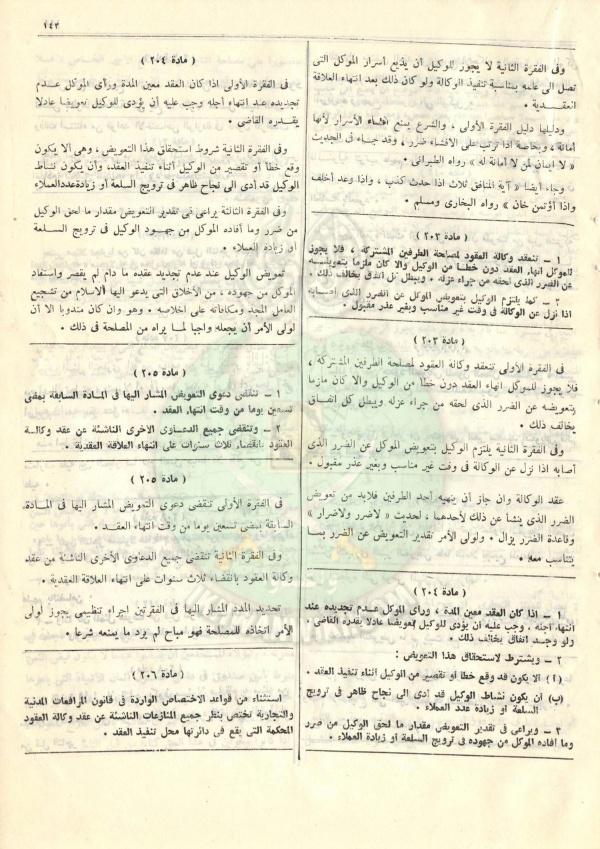 ١٤٣
وفى الفقرة الثانية لا يجوز للوكيل أن يذيع أسرار الموكل التى
تصل الى علمه بمناسبة تنفيذ الوكالة ولو كان ذلك بعد انتهاء العلاقة
العقدية .
ودليلها دليل الفقرة الأولى ، والشرع يمنع افشاء الأسرار لأنها
أمانة ، وبخاصة اذا ترتب على الافشاء ضرر ، وقد جاء فى الحديث
« لا ايمان لمن لا أمانة له » رواه الطبرانى .
وجاء أيضا « آية المنافق ثلاث اذا حدث كذب ، واذا وعد أخلف
واذا أؤتمن خان » رواه البخارى ومسلم .
( مادة ٢٠٣ )
١ – تنعقد وكالة العقود لمصلحة الطرفين المشتركة ، فلا يجوز
للموكل انهاء العقد دون خطأ من الوكيل والا كان ملزما بتعويضه
عن الضرر الذى لحقه من جراء عزله . ويبطل كل اتفاق يخالف ذلك .
٢ – كما يلتزم الوكيل بتعويض الموكل عن الضرر الذى أصابه
اذا نزل عن الوكالة فى وقت غير مناسب وبغير عذر مقبول .
( مادة ٢٠٣ )
فى الفقرة الأولى تنعقد وكالة العقود لمصلحة الطرفين المشتركة ،
فلا يجوز للموكل انهاء العقد دون خطأ من الوكيل والا كان ملزما
بتعويضه عن الضرر الذى لحقه من جراء عزله ويبطل كل اتفاق
يخالف ذلك .
فى الفقرة الثانية يلتزم الوكيل بتعويض الموكل عن الضرر الذى
أصابه اذا نزل عن الوكالة فى وقت غير مناسب وبغير عذر مقبول .
عقد الوكالة وان جاز أن ينهيه أحد الطرفين فلابد من تعويض
الضرر الذى ينشأ عن ذلك لأحدهما ، لحديث « لاضرر ولاضرار »
وقاعدة الضرر يزال . ولولى الأمر تقدير التعويض عن الضرر بما
يتناسب معه .
( مادة ٢٠٤ )
١ – اذا كان العقد معين المدة ، ورأى الموكل عدم تجديده عند
انتهاء أجله ، وجب عليه أن يؤدى للوكيل تعويضا عادلا يقدره القاضى .
ولو وجد اتفاق يخالف ذلك .
٢ – ويشترط لاستحقاق هذا التعويض :
( أ ) الا يكون قد وقع خطأ أو تقصير من الوكيل أثناء تنفيذ العقد .
(ب) أن يكون نشاط الوكيل قد أدى الى نجاح ظاهر فى ترويج
السلعة أو زيادة عدد العملاء .
٣ – ويراعى فى تقدير التعويض مقدار ما لحق الوكيل من ضرر
وما أفاده الموكل من جهوده فى ترويج السلعة أو زيادة العملاء .
( مادة ٢٠٤ )
فى الفقرة الأولى اذا كان العقد معين المدة ورأى الموكل عدم
تجديده عند انتهاء أجله وجب عليه أن يؤدى للوكيل تعويضا عادلا
يقدره القاضى .
وفى الفقرة الثانية شروط استحقاق هذا التعويض ، وهى ألا يكون
وقع خطأ أو تقصير من الوكيل أثناء تنفيذ العقد، وأن يكون نشاط
الوكيل قد أدى الى نجاح ظاهر فى ترويج السلعة أو زيادةعددالعملاء
وفى الفقرة الثالثة يراعى فى تقدير التعويض مقدار ما لحق الوكيل
من ضرر وما أفاده الموكل من جهود الوكيل فى ترويج السلعة
أو زيادة العملاء .
تعويض الوكيل عند عدم تجديد عقده ما دام لم يقصر واستفاد
الموكل من جهوده ، من الأخلاق التى يدعو اليها الاسلام من تشجيع
العامل المجد ومكافأته على اخلاصه . وهو وان كان مندوبا الا أن
لولى الأمر أن يجعله واجبا لما يراه من المصلحة فى ذلك .
( مادة ٢٠٥ )
١ – تنقضى دعوى التعويض المشار اليها فى المادة السابقة بمضى
تسعين يوما من وقت انتهاء العقد .
٢ – وتنقضى جميع الدعاوى الأخرى الناشئة عن عقد وكالة
العقود بانقضاء ثلاث سنوات على انتهاء العلاقة العقدية .
( مادة ٢٠٥ )
فى الفقرة الأولى تنقضى دعوى التعويض المشار اليها فى المادة
السابقة بمضى تسعين يوما من وقت انتهاء العقد .
وفى الفقرة الثانية تنقضى جميع الدعاوى الأخرى الناشئة عن عقد
وكالة العقود بانقضاء ثلاث سنوات على انتهاء العلاقة العقدية .
تحديد المدد المشار اليها فى الفقرتين اجراء تنظيمى يجوز لولى
الأمر اتخاذه للمصلحة فهو مباح لم يرد ما يمنعه شرعا .
( مادة ٢٠٦ )
استثناء من قواعد الاختصاص الواردة فى قانون المرافعات المدنية
والتجارية تختص بنظر جميع المنازعات الناشئة عن عقد وكالة العقود
المحكمة التى يقع فى دائرتها محل تنفيذ العقد .